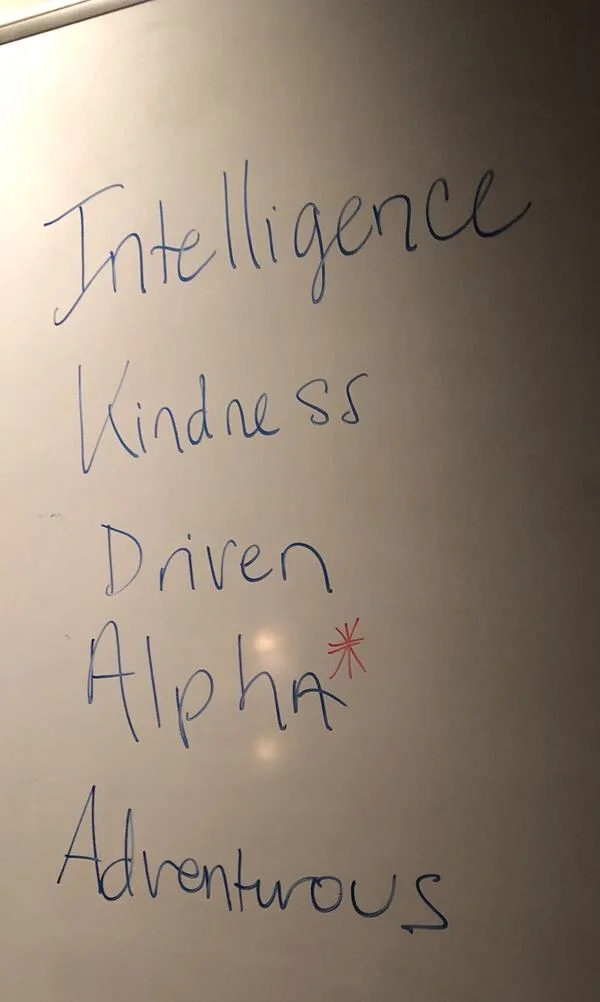 Intelligence
Kindness
Driven
Alpha*
Adventurous